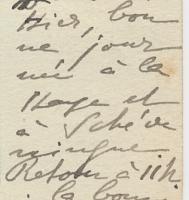 Hier, bon
ne jour
née à la
Haye et
à Schéve
ningue
Retour à 11h